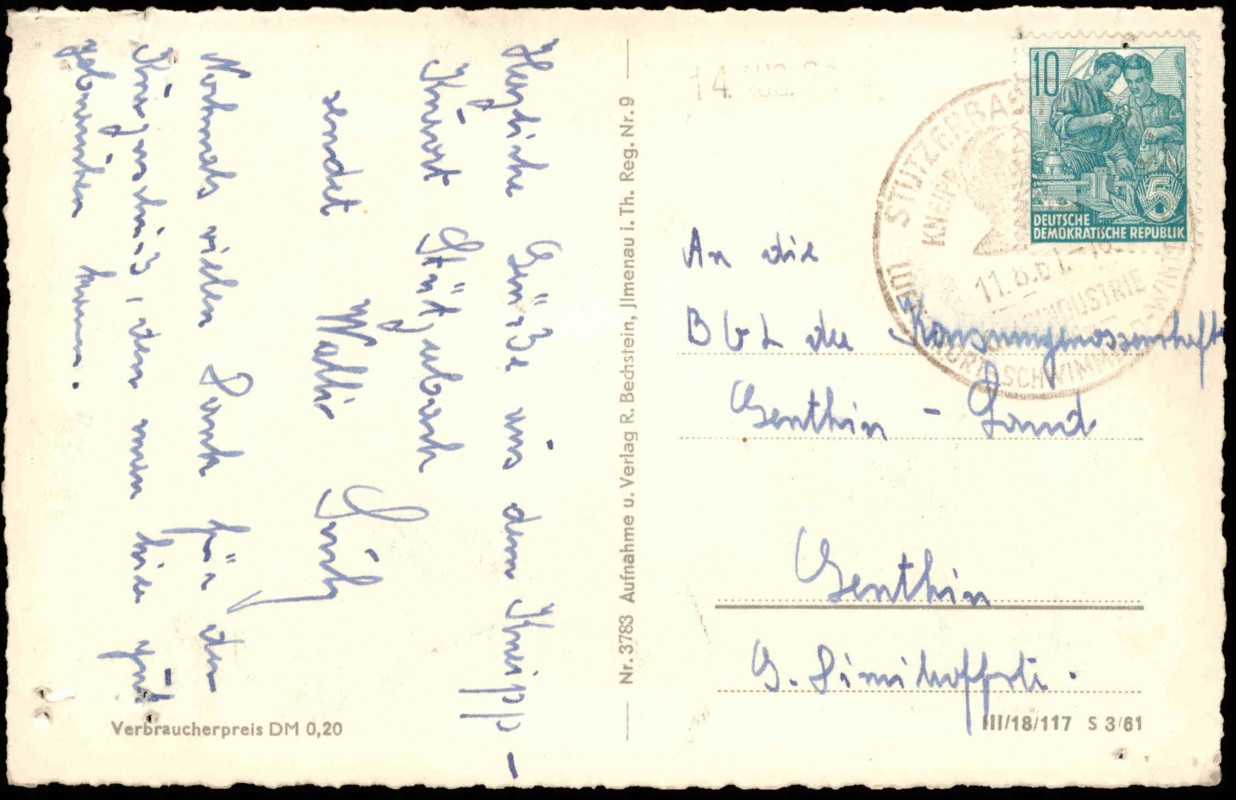 Herzliche Grüße aus dem Kneipp-
Kurort Stützerbach
sendet Walli
Nochmals vielen Dank für den
den man hier gut
gebrauchen kann.
Verbraucherpreis DM 0,20
Nr. 3783 Aufnahme u. Verlag R. Bechstein, Ilmenau i. Th. Reg. Nr. 9
14. AUG.
10
DEUTSCHE
DEMOKRATISCHE REPUBLIK
5
STÜTZERBACH
KNEIPP
11.8.61.-18
INDUSTRIE
SCHWIMM
An die
BGL der Konsumgenossenschaft
Genthin - Land
Genthin
G.
III/18/117 S 3/61